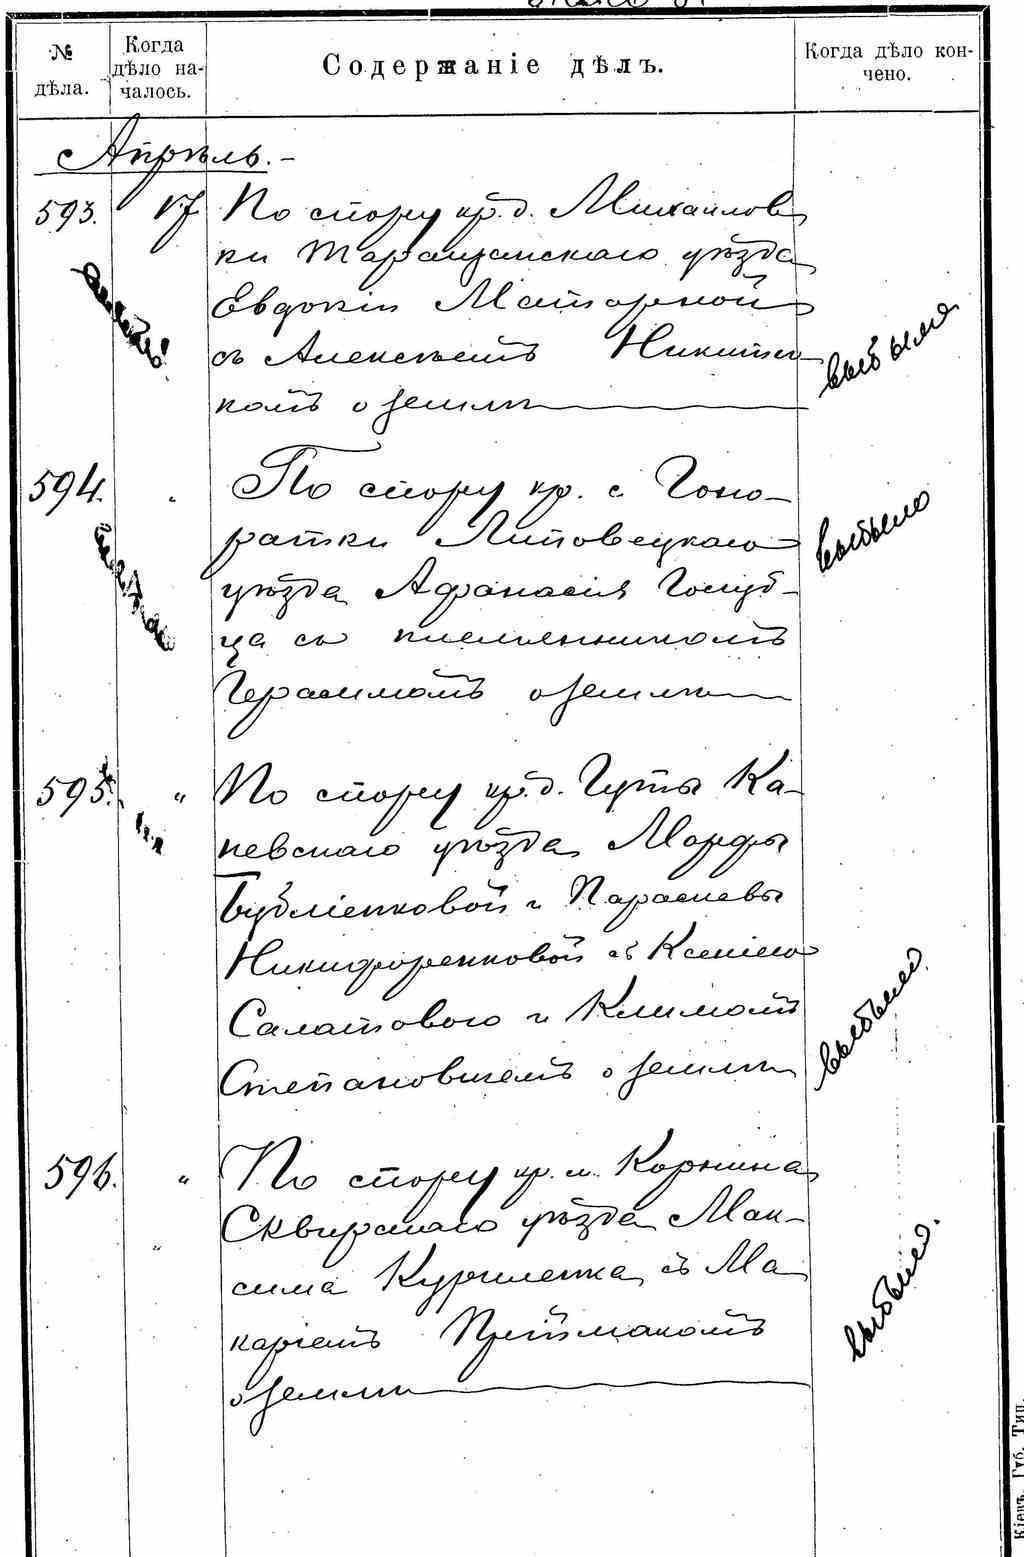 № дѣла.
Когда дѣло на-
чалось.
Содержаніе дѣлъ.
Когда дѣло кон-
чено.
Апрѣль.-
593. 17 По спору кр. д. Михайлов
ки Таращанскаго уѣзда
Евдокіи Маторной
съ Алексѣемъ
комъ о земли
выбыло
594. " По спору кр. с. Гоно-
ратки Липовецкаго
уѣзда Афанасія Голуб-
ца съ племянникомъ
Герасимомъ о земли
выбыло
595. " По спору кр. д. Гуты Ка-
невскаго уѣзда Марфы
Бубліенковой и Параскевы
Никифоренковой съ Ксеніею
Салатового и Климомъ
о земли
выбыло
596. " По спору кр. м. Корнина
Сквирскаго уѣзда Мак-
сима Куриленка съ Ма
каріемъ Пріймакомъ
о земли
выбыло.
Кіевъ. Губ. Тип.